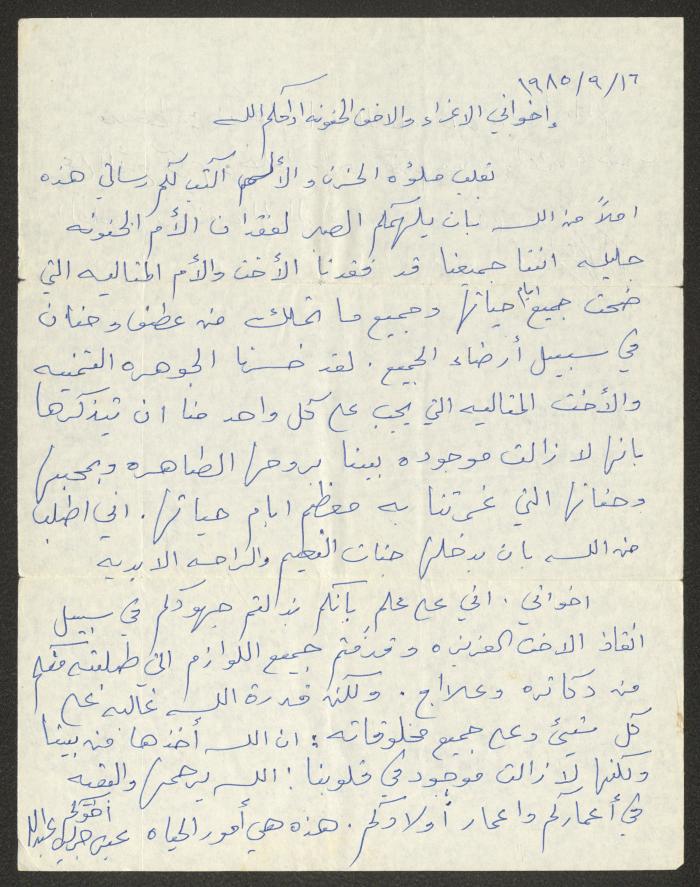 ١٩٨٥/٩/١٦
إخواني الاعزاء والاخت الحنونه ادامكم الله
بقلب ملؤه الحزن والألم اكتب لكم رسالتي هذه
املاً من الله بان يلهمكم الصبر لفقدان الأم الحنونه
جليله اننا جميعنا قد فقدنا الأخت والأم المثاليه التي
ضحت جميع ايام حياتها وجميع ما تملك من عطف وحنان
في سبيل أرضاء الجميع . لقد خسرنا الجوهره الثمنيه
والأخت المثاليه التي يجب على كل واحد منا ان يتذكرها
بانها لا زالت موجوده بيننا بروحها الطاهره وبمحبتها
وحنانها التي غمرتنا به معظم ايام حياتها . اني اطلب
من الله بان يدخلها جنات النعيم والراحه الابديه
اخواني . اني على علم بأنكم بذلتم جهودكم في سبيل
انقاذ الاخت العزيزه وقدمتم جميع اللوازم التي طلبت منكم
من دكاتره وعلاج . ولكن قدرة الله غالبه على
كل شيئ وعلى جميع مخلوقاته : ان الله أخذها من بيننا
ولكنها لا زالت موجود في قلوبنا ! الله يرحمها والبقيه
في أعماركم واعمار أولادكم . هذه هي أمور الحياه
أخوكم